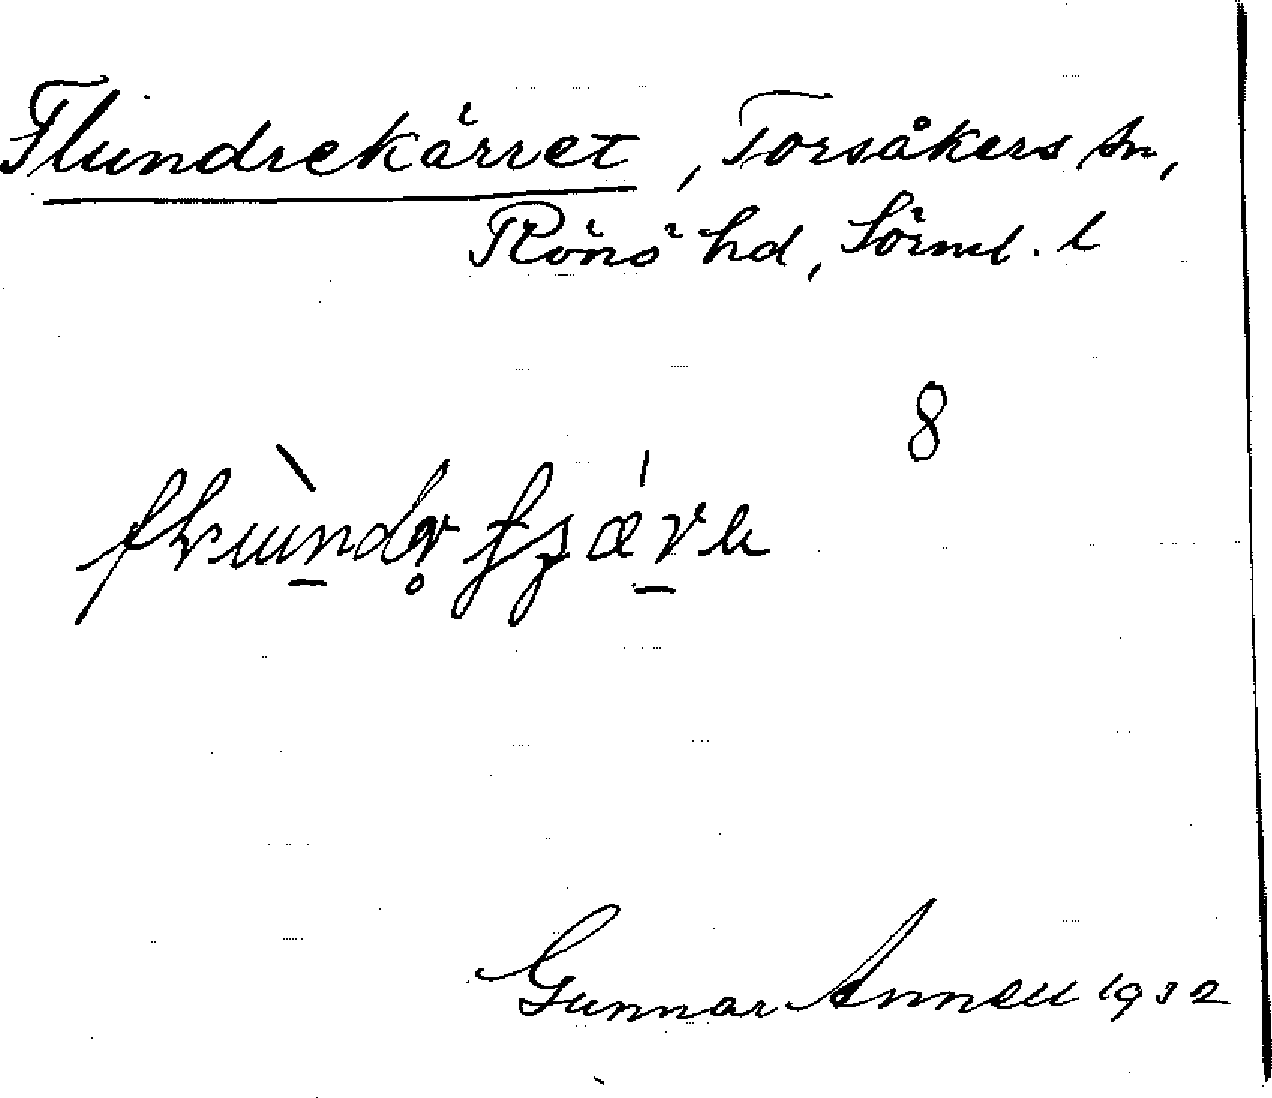 Flundrekärret, Torsåkers sn,
Rönö hd, Sörml. l
8
Gunnar Annell 1932